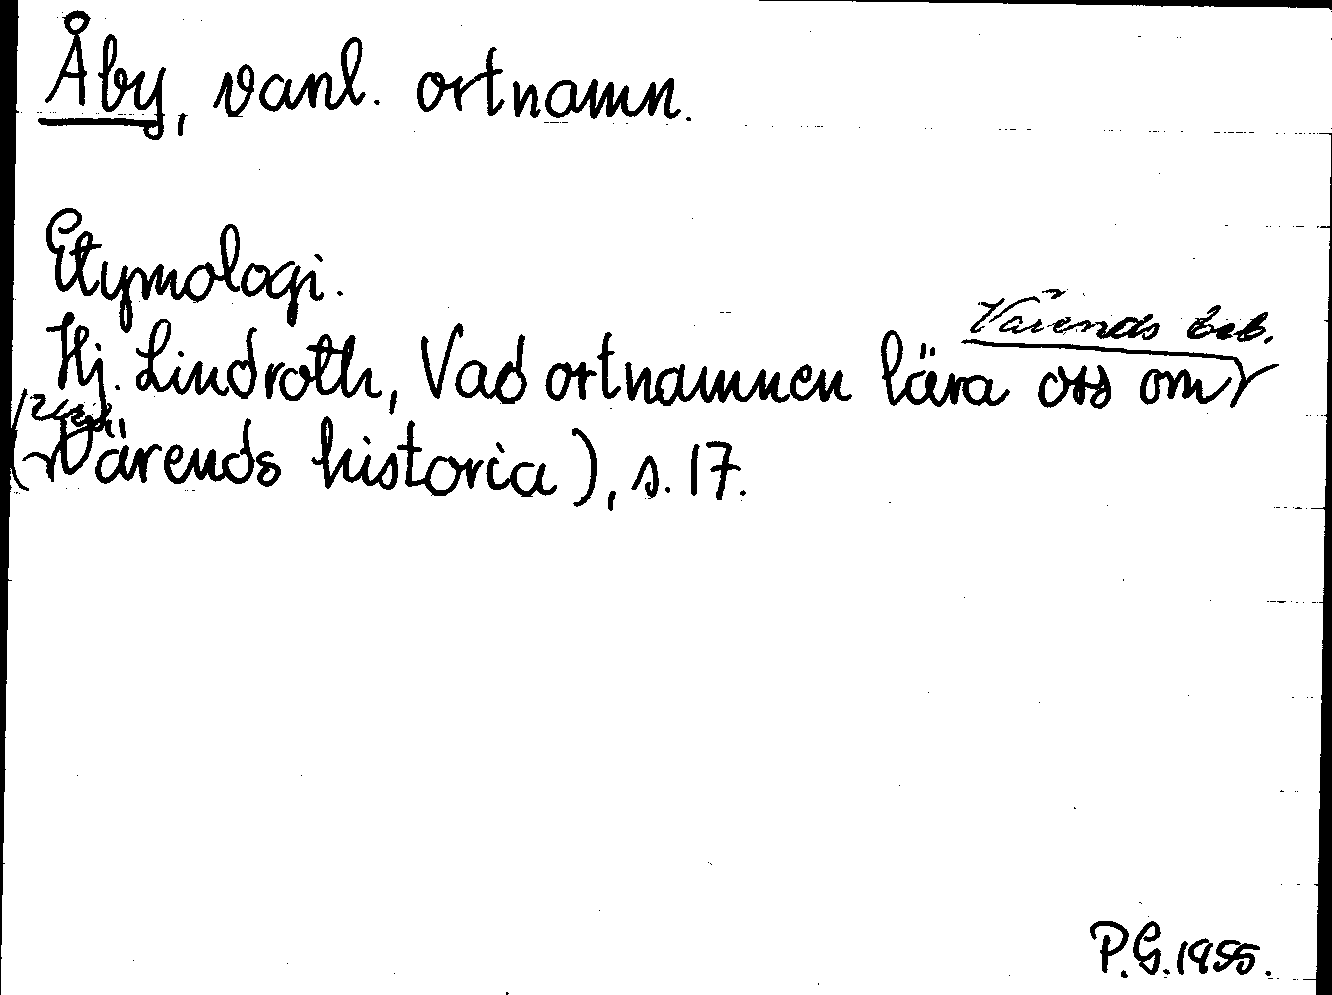 Åby, vanl. ortnamn.
Etymologi.
Värends beb.
Hj. Lindroth, Vad ortnamnen lära oss om
(Värends historia), s. 17.
P.G. 1955.